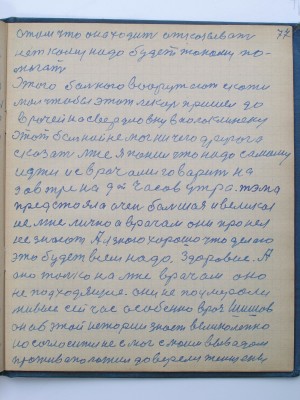 77
о том что она ходит отказывает
нет кому надо будет тому по-
могать
этого больного вокруг
мол чтобы этот лекарь пришел до
врачей на свердловку в клинику
этот больной не мог ничего другого
сказат мне я понил что надо самому
идти и с врачами говорит на
завтра на 9 часов утра. тама
предстояла очен большая и великая
не мне лично а врачам они про нея
не знают А я знаю хорошо что дело
это будет всем надо. Здоровие. А
оно только на мне врачам оно
не подходящие. они не
живые сейчас особенно врач Шишов
он об этой истории знает великолепно
но согласится не с моим выводам
противоположим доверели женщены